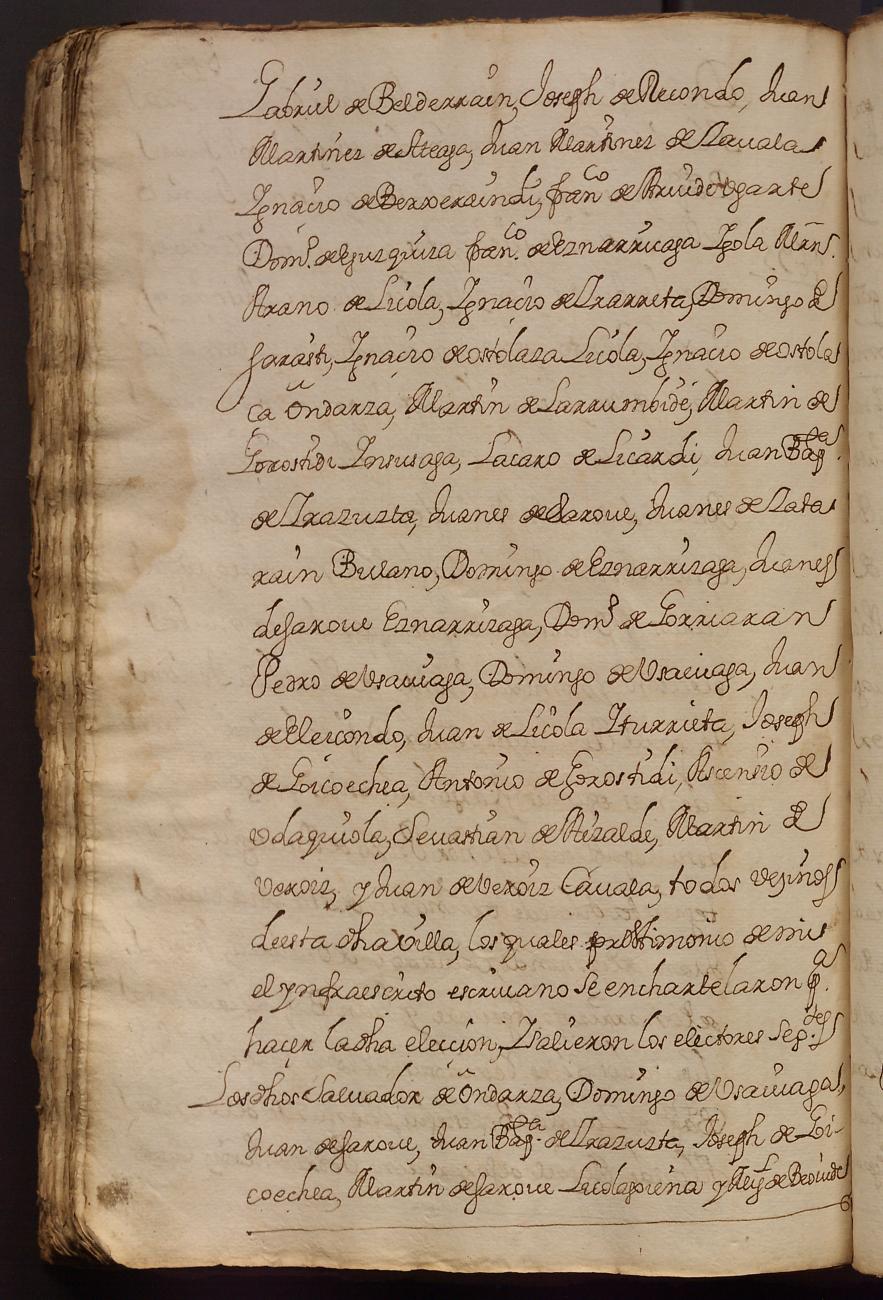 Gabriel de Belderrain, Joseph de Recondo, Juan
Martinez de Ateaga, Juan Martinez de Zauala
Ygnacio de Berroeraindi, fran.co de Aruide Vgarte
Dom.o de Eguzquiza fran.co de Eznarriçaga Ygola Mrñ.
Arano de Liçola, Ygnacio de Yrarreta, Domingo de
Sarasti, Ygnacio de ostolaza Liçola, Ygnacio de ostola
ça Ondarza, Martin de Larrumbide, Martin de
Gorostidi Ynsusaga, Laçaro de Liçardi, Juan Bap.ta
de Yrazuzta, Juanes de Saroue, Juanes de Zata
rain Buano, Domingo de Eznarrizaga, Juanes
de Saroue Eznarrizaga, Dom.o de Gorriaran
Pedro de Vsauiaga, Domingo de Vsauiaga, Juan
de Eleicondo, Juan de Liçola Yturrieta, Joseph
de Goicoechea, Antonio de Gorostidi, Ascensio de
Vdaquiola, Seuastian de Alzalde, Martin de
Veroiz, y Juan de Veroiz Çauala, todos veçinos
de esta dha villa, los quales por testimonio de mi
el ynfraescrito escriuano se encharte laron p.a
hacer la dha elecçion, Y salieron los electores Seg.tes
Los dhos Saluador de Ondarza, Domingo de Vsauiaga,
Juan de Saroue, Juan Bap.ta de Yrazuzta, Joseph de Goi-
coechea, Martin de Saroue Liçolapiena y